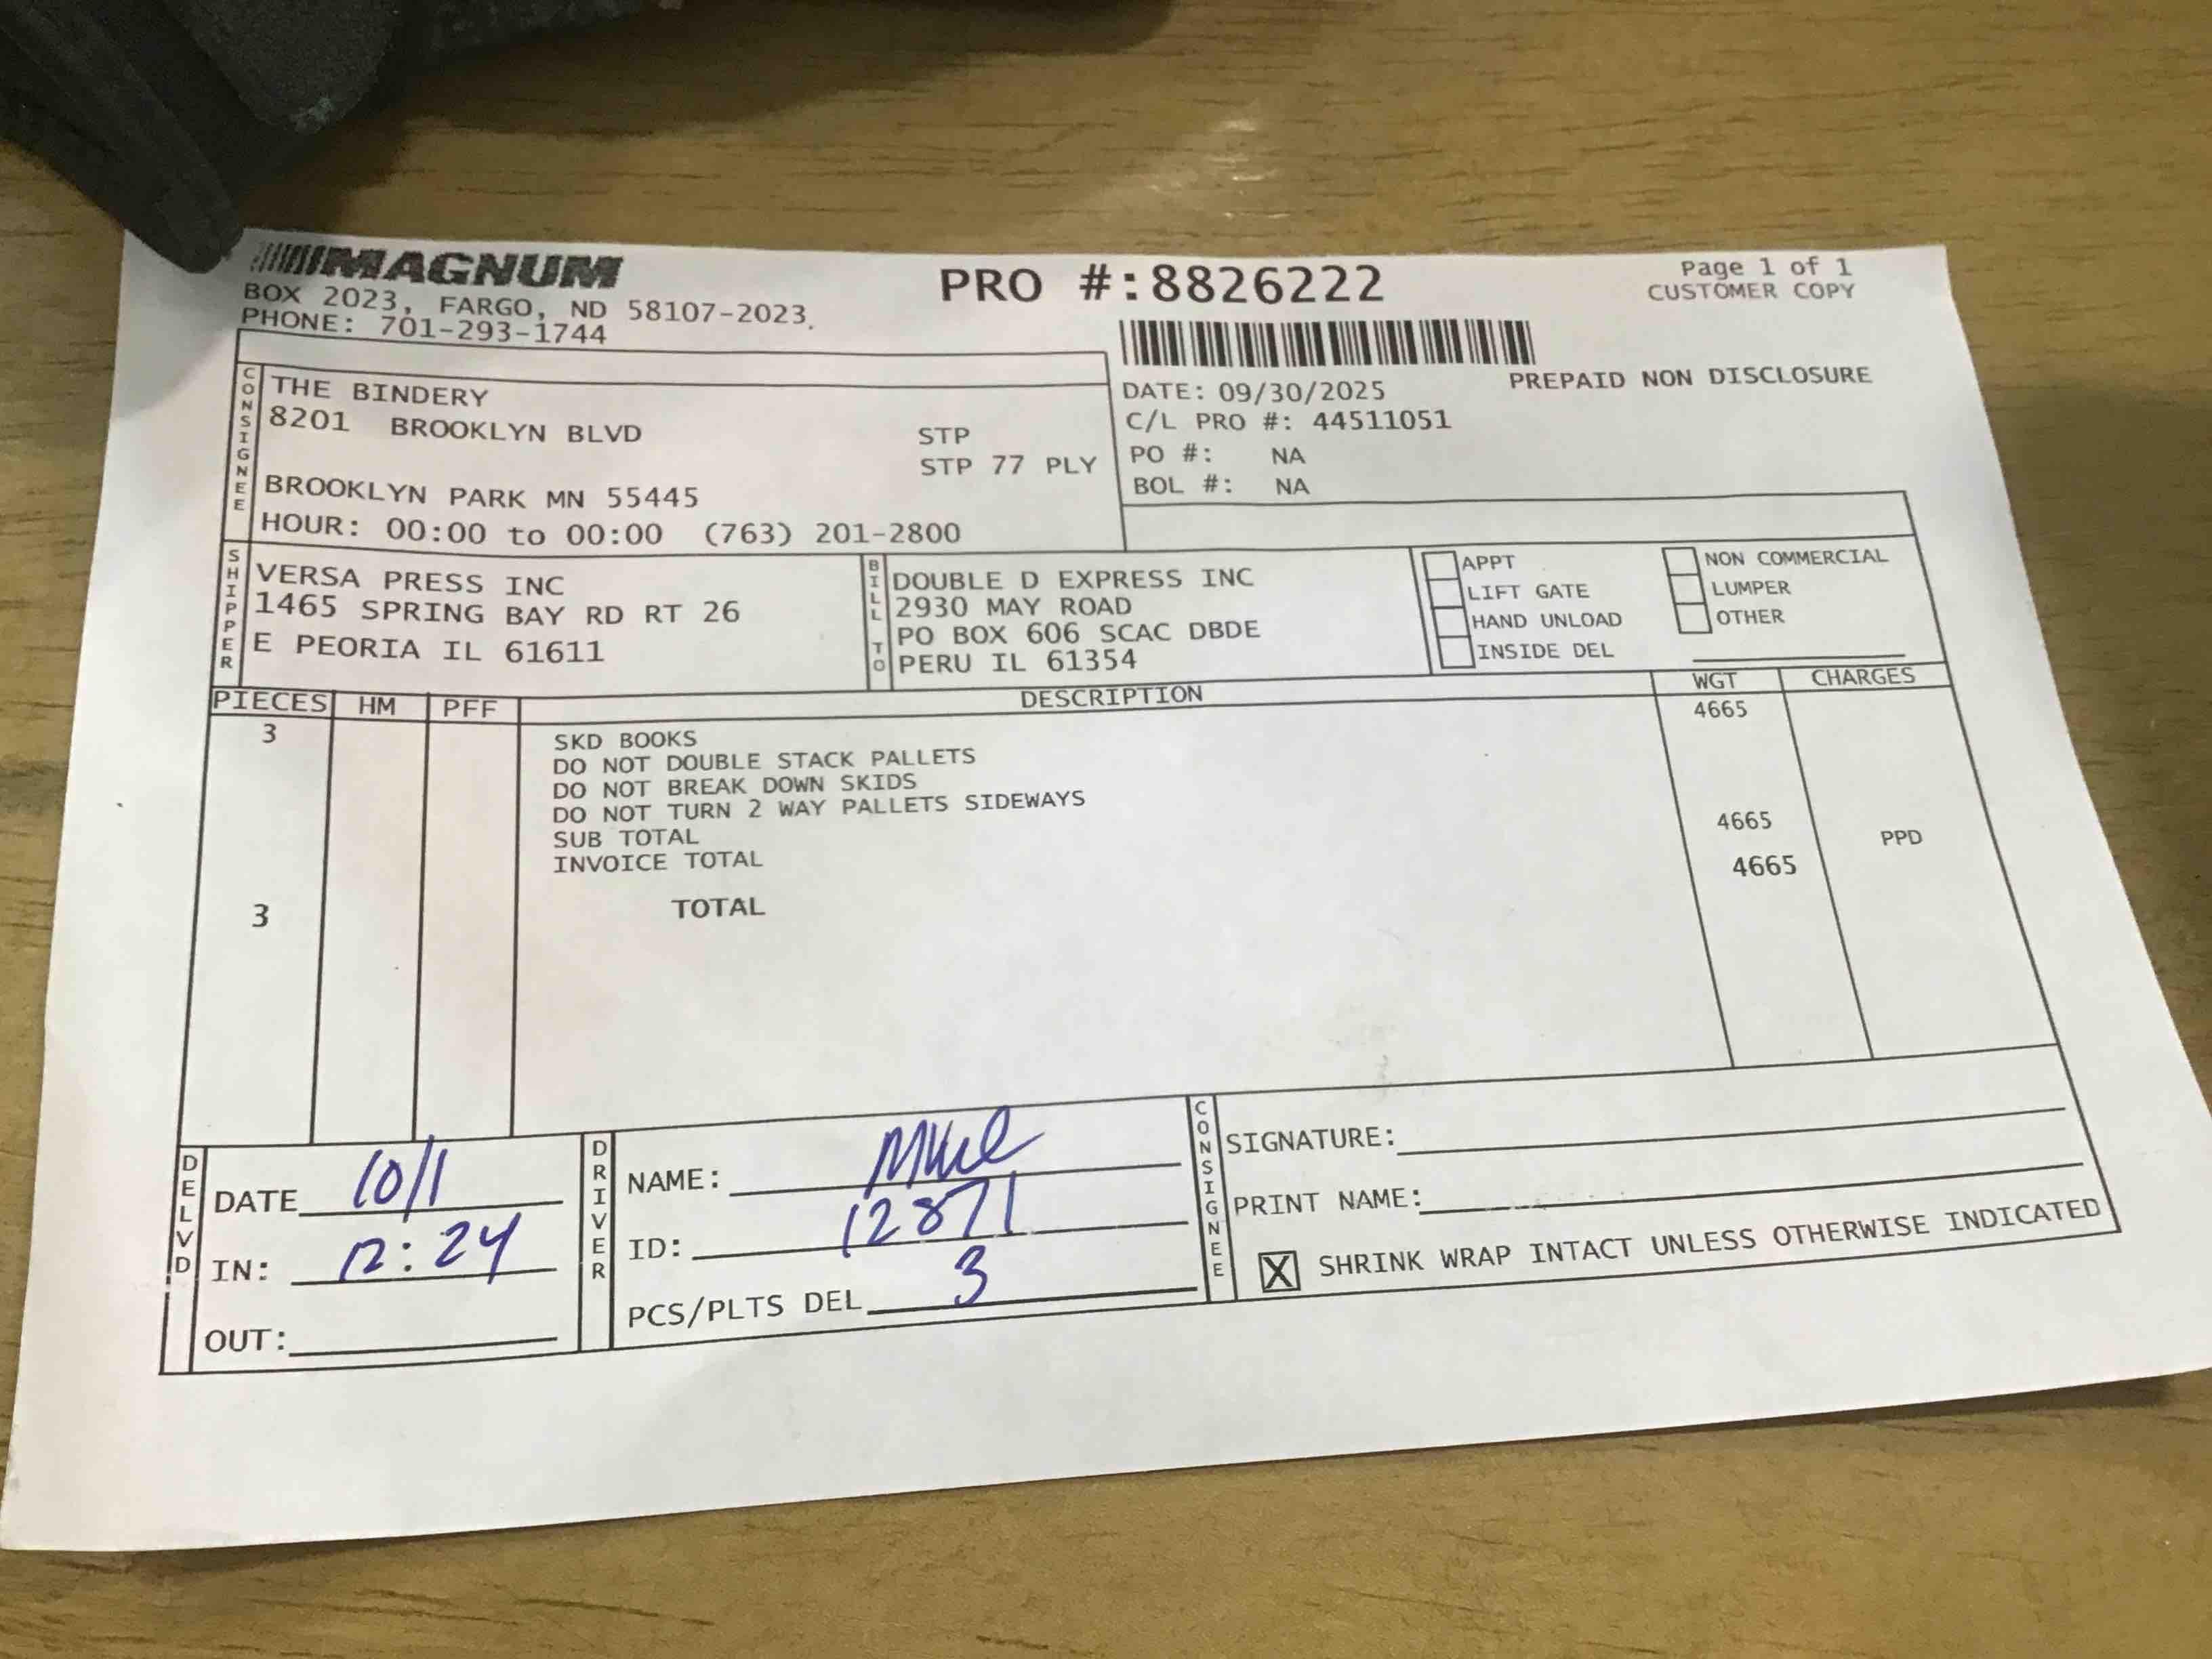 MAGNUM
BOX 2023, FARGO, ND 58107-2023.
PHONE: 701-293-1744
PRO #:8826222
Page 1 of 1
CUSTOMER COPY
CONSIGNEE
THE BINDERY
8201 BROOKLYN BLVD
STP
STP 77 PLY
BROOKLYN PARK MN 55445
HOUR: 00:00 to 00:00 (763) 201-2800
DATE: 09/30/2025
PREPAID NON DISCLOSURE
C/L PRO #: 44511051
PO #: NA
BOL #: NA
SHIPPER
VERSA PRESS INC
1465 SPRING BAY RD RT 26
E PEORIA IL 61611
BILL TO
DOUBLE D EXPRESS INC
2930 MAY ROAD
PO BOX 606 SCAC DBDE
PERU IL 61354
APPT
LIFT GATE
HAND UNLOAD
INSIDE DEL
NON COMMERCIAL
LUMPER
OTHER
PIECES HM PFF DESCRIPTION WGT CHARGES
3 SKD BOOKS 4665
DO NOT DOUBLE STACK PALLETS
DO NOT BREAK DOWN SKIDS
DO NOT TURN 2 WAY PALLETS SIDEWAYS
SUB TOTAL 4665
INVOICE TOTAL PPD
3 TOTAL 4665
DELVD
DATE 10/1
IN: 12:24
OUT:
DRIVER
NAME: Mike
ID: 12871
PCS/PLTS DEL 3
CONSIGNEE
SIGNATURE:
PRINT NAME:
X SHRINK WRAP INTACT UNLESS OTHERWISE INDICATED